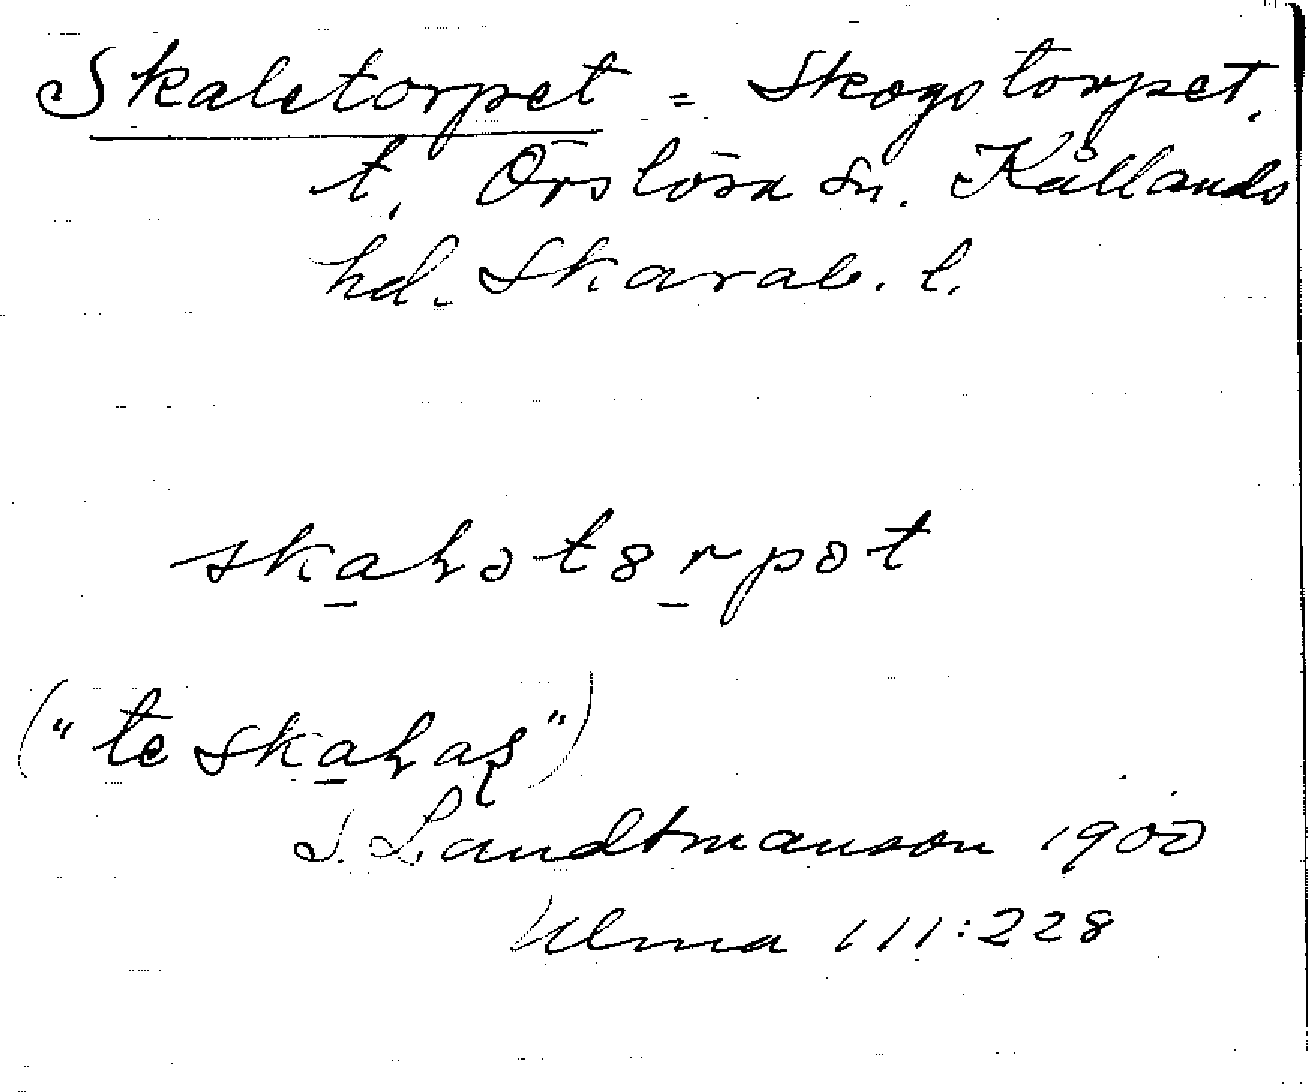 Skaletorpet = Skogstorpet,
t. Örslösa sn. Kållands
hd. Skarab. l.
skaꞎətȣrpət
("te skaꞎas")
S. Landtmanson 1900
Ulma 111:228